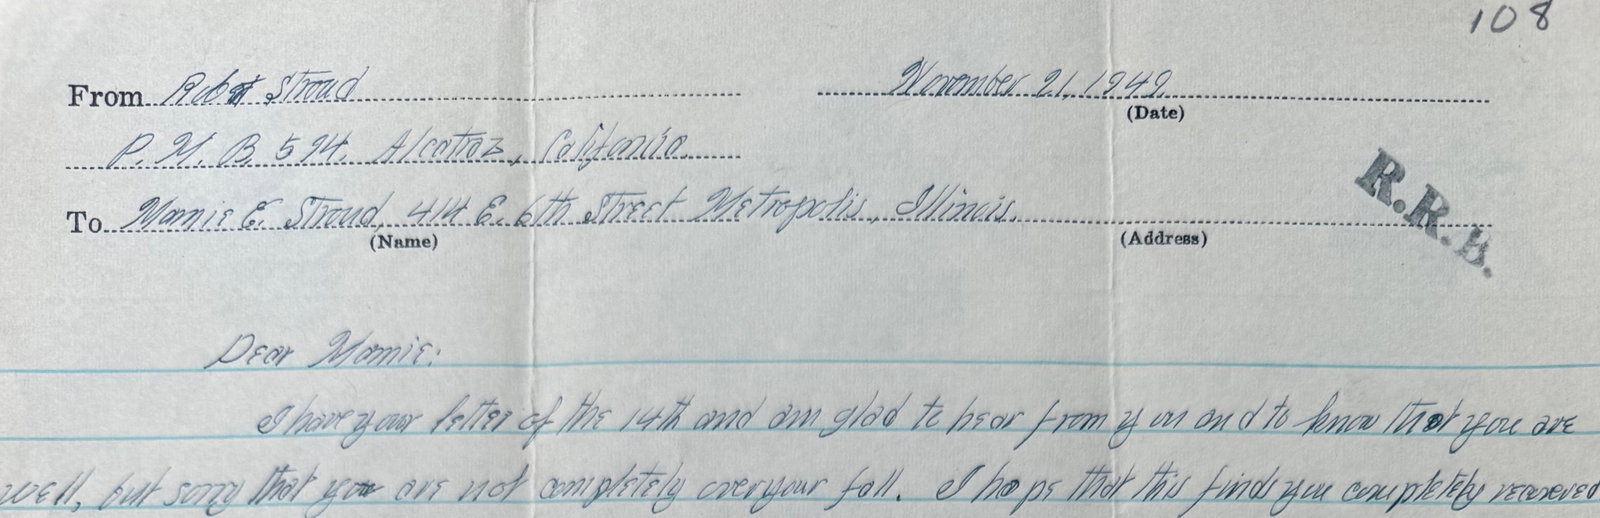 108
From Robt Stroud November 21, 1949.
(Date)
P. M. B. 594. Alcatraz, California.
To Mamie E. Stroud, 414 E. 6th Street Metropolis, Illinois.
(Name) (Address)
R.R.B.
Dear Mamie:
I have your letter of the 14th and am glad to hear from you and to know that you are
well, but sorry that you are not completely over your fall. I hope that this finds you completely recovered